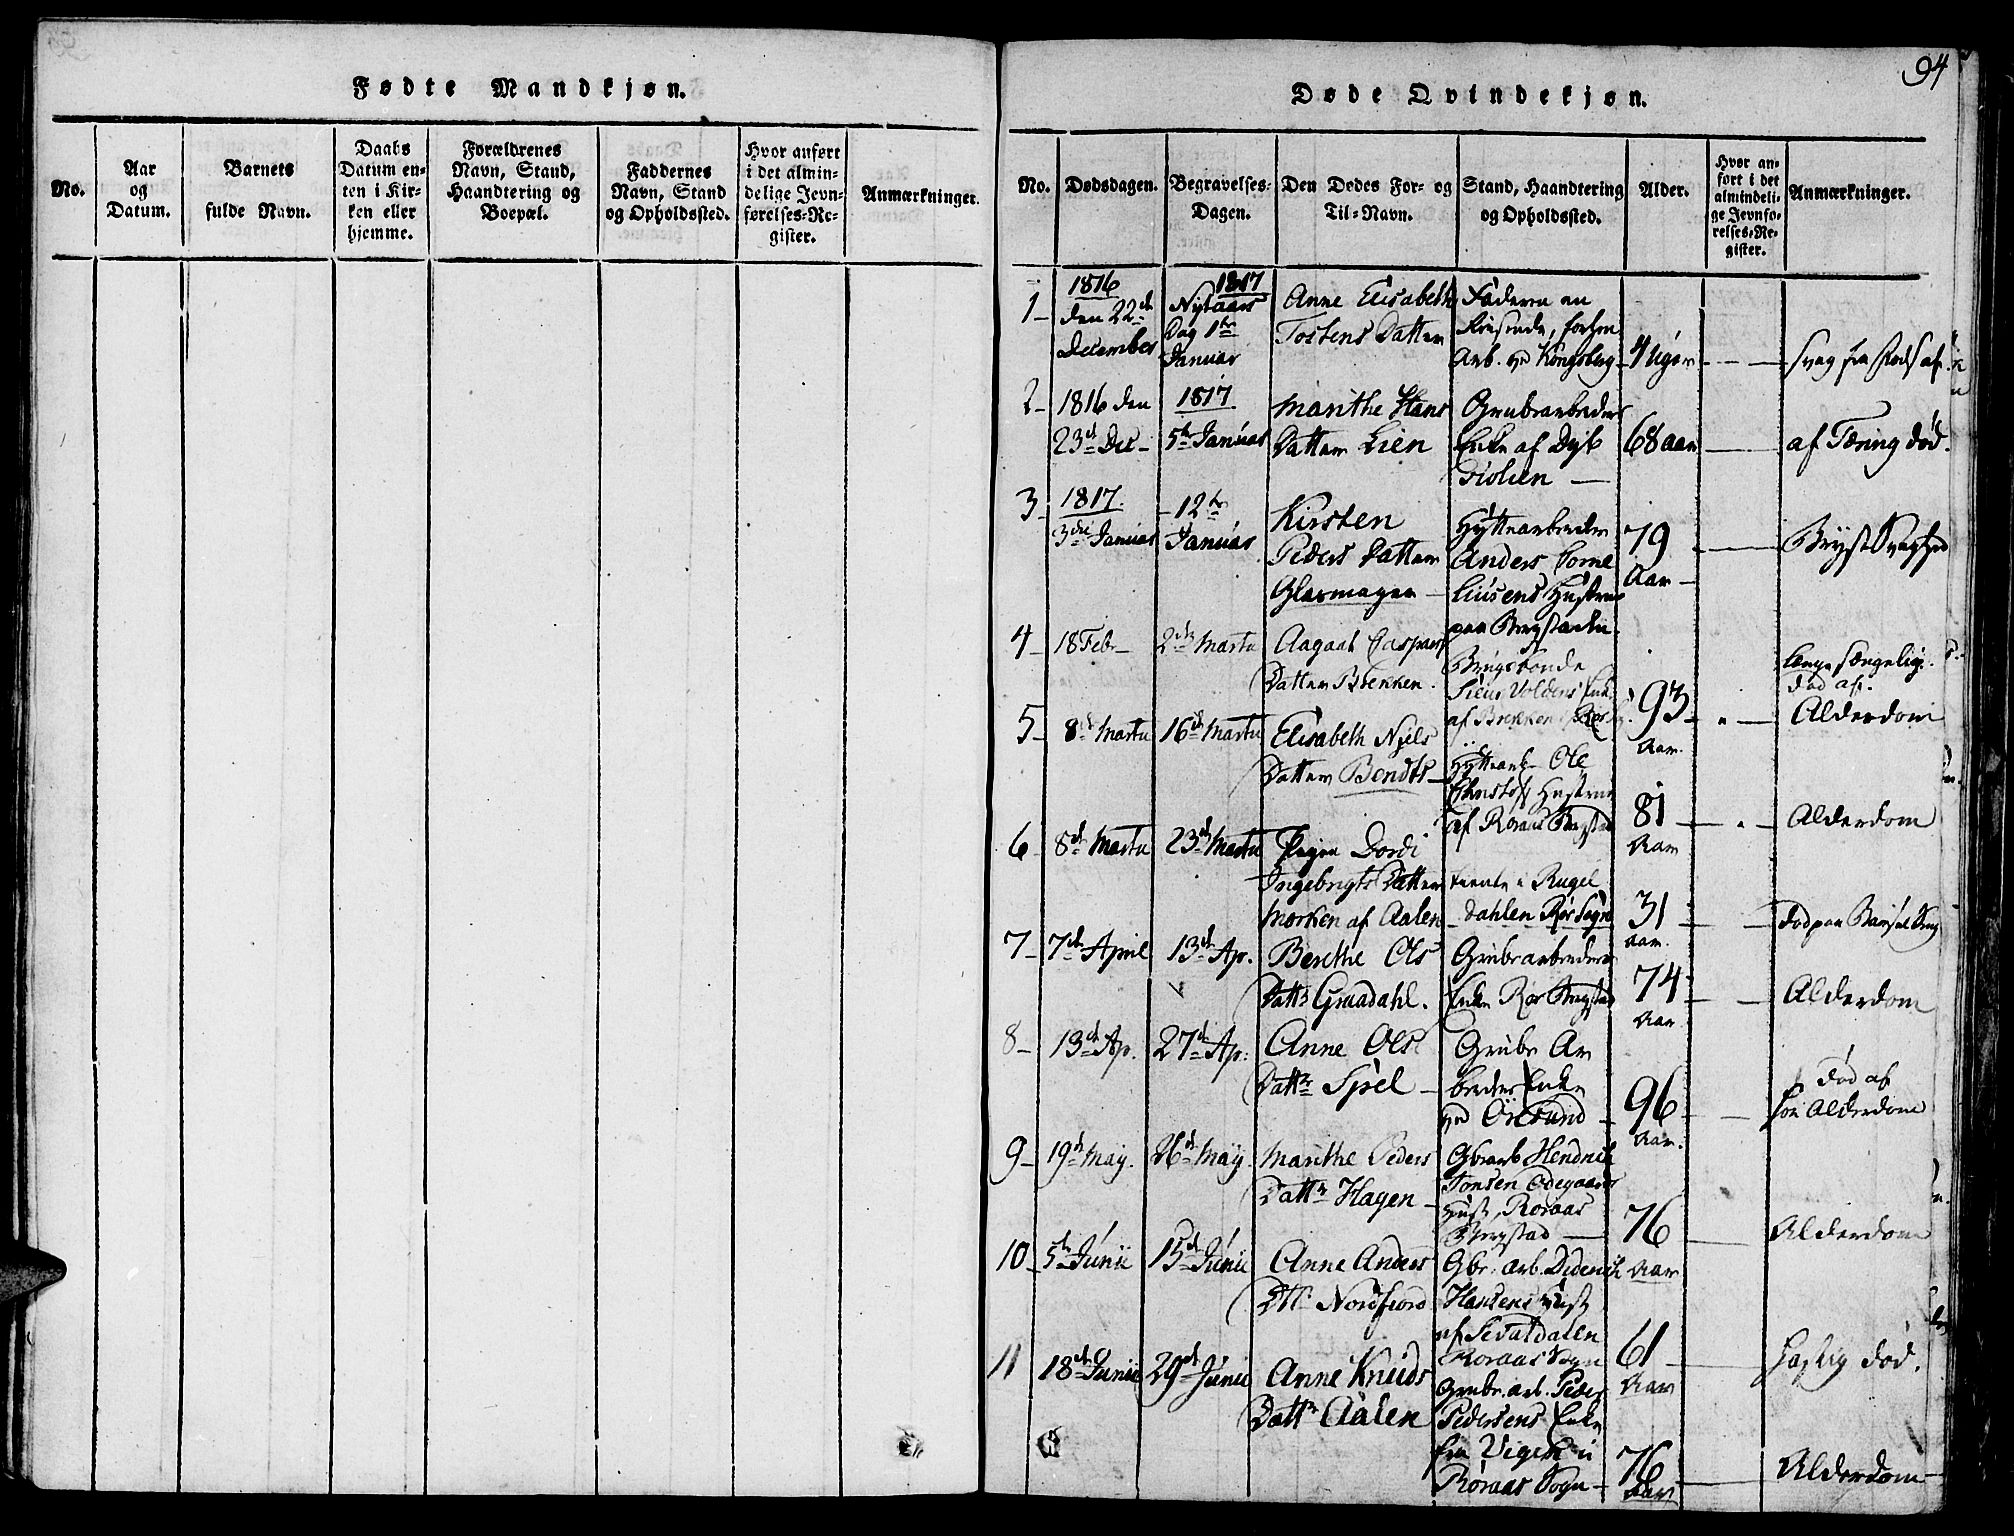 Fødte Mandkjøn.
No.
Aar
og
Datum.
Barnets
fulde Navn.
Daabs
Datum en-
ten i Kir-
ken eller
hjemme.
Forældrenes
Navn, Stand,
Haandtering og
Boepæl.
Faddernes
Navn, Stand
og Opholdssted.
Hvor anført
i det almin-
delige Jevn-
førelses-Re-
gister.
Anmærkninger.
94
Døde Qvindekjøn.
No.
Dødsdagen.
Begravelses-
Dagen.
Den Dødes For- og
Til-Navn.
Stand, Haandtering
og Opholdssted.
Alder.
Hvor an-
ført i det
almindeli-
ge Jevnfø-
relses-Re-
gister.
Anmærkninger.
1
1816
den 22d
December
1817
Nytaars
Dag 1te
Januar
Anne Elisabeth
Tostens Datter
Faderen en
Arb. ved Kongsberg
4 Uger
svag fra
2
1816 den
23d Dec
1817
5te Januar
Marithe Hans
Datter Lien
Grubearbeider
Enke af Dyb
68 aar
af Tæring død.
3
1817.
3die Januar
12te
Januar
Kirsten
Peders Datter
Glasmager
Hyttearbeider
Anders Corne
liusens Hustrue
paa Bergstaden
79
Aar
Bryst Svaghed
4
18 Febr
2den Martii
Aagaat Caspers
Datter Brekken.
Brugsbonde
af Brekken
93
Aar.
længe sængelig.
død af.
Alderdom
5
8de Martii
16d Martii
Elisabeth Niels
Datter Bendts
Hyttearb. Ole
Christophs Hustrue
af Røraas Bergstad
81
Aar
Alderdom
6
8d Martii
23d Martii
Pigen Dordi
Ingebrigts Datter
Morken af Aalen
tiente i Rugel
dahlen Rør. Sogn
31
aar.
død paa Barsel Seng
7
7de April
13de Ap.
Berethe Ols
Datt. Graadahl.
Grubearbeiders
Enke Rør. Bergstad
74
Aar
Alderdom
8
13de Ap.
27de Ap.
Anne Ols
Datter Spel
Grube Ar
beiders Enke
ved Øresund
96
Aar.
død af
Alderdom
9
19d May.
26d May.
Marithe Peders
Datter Hagen
Gbrarb Hendrich
Jonsen Ødegaards
Hust. Røraas
Bergstad
76
Aar
Alderdom
10
5te Junii
15de Junii
Anne Anders
Dtt. Nordfiord
Gbr. arb. Diderich
Hansens Hust
af
Røraas Sogn
61
Aar
hastig død.
11
18de Junii
29de Junii
Anne Knuds
Datter Aalen
Grube. arb. Peder
Pedersens Enke
fra Vigen i
Røraas Sogn
76
Aar
Alderdom